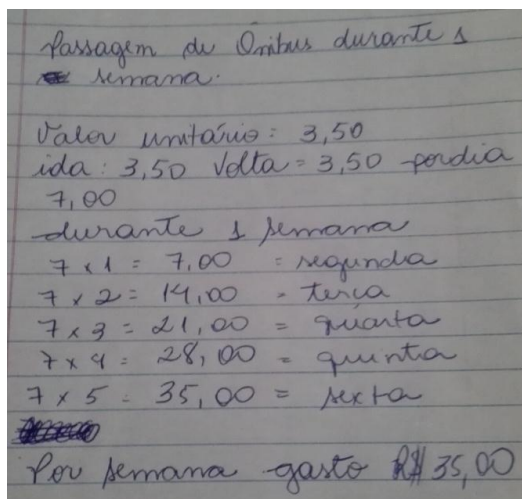 Passagem de Ônibus durante 1
semana.
Valor unitário: 3,50
ida: 3,50 Volta = 3,50 por dia
7,00
durante 1 semana
7 x 1 = 7,00 = segunda
7 x 2 = 14,00 = terça
7 x 3 = 21,00 = quarta
7 x 4 = 28,00 = quinta
7 x 5 = 35,00 = sexta
Por semana gasto R$ 35,00